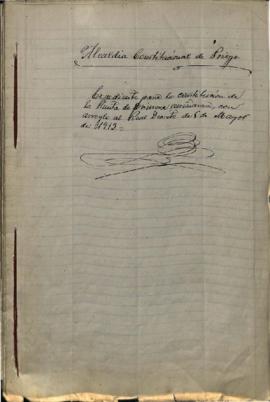 Alcaldia Constitucional de Priego
Expediente para la constitución de
la Junta de primera enseñanza, con
arreglo al Real Decreto de 5 de Mayo
de 1913=